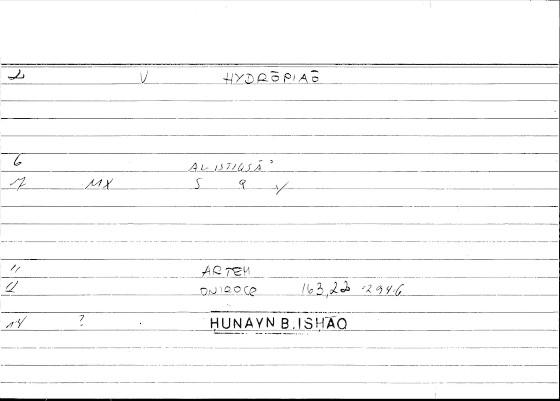 2 V HYDRŌPIAŌ
6 AL-ISTISQĀʾ
7 MX S Q Y
11 ARTEM
12 ONIROCR 163,22 294.6
14 ? HUNAYN B. ISHAQ